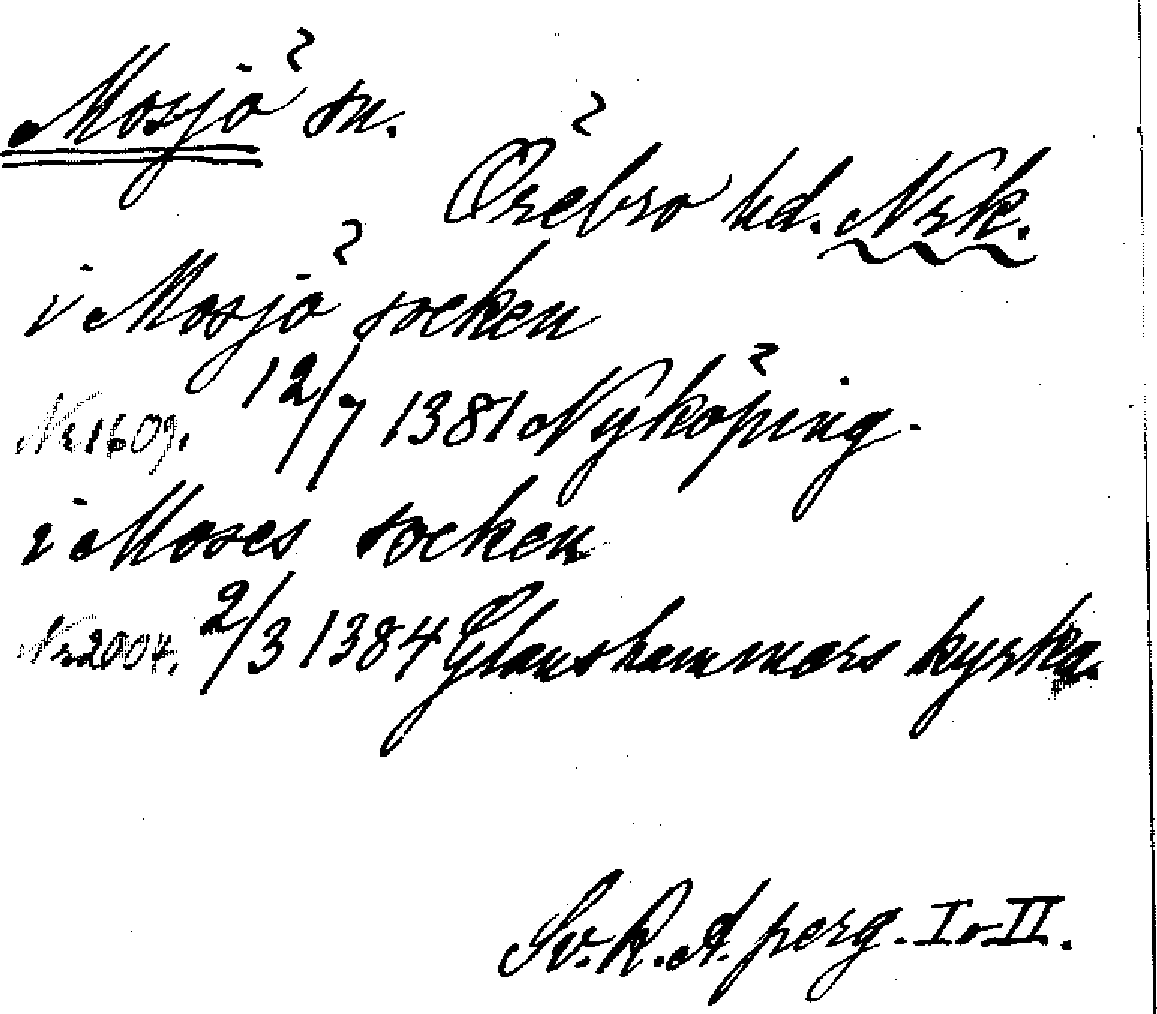 Mosjö sn.
Örebro hd. Nrk.
i Mosjö socken
Nr 1609. 12/7 1381 Nyköping.
i Moses socken
Nr 2004. 2/3 1384 Glanshammars kyrka.
Sv. R. A. perg. I o II.